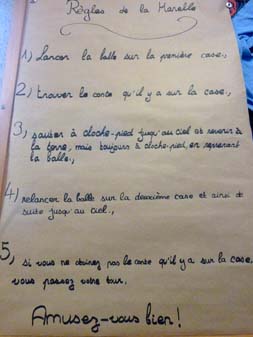 Règles de la Marelle
1) Lancer la balle sur la première case.,
2) trouver le conte qu'il y a sur la case.,
3) sauter à cloche-pied jusqu'au ciel et revenir à
la terre, mais toujours à cloche-pied, en reprenant
la balle.,
4) relancer la balle sur la deuxième case et ainsi de
suite jusqu'au ciel.,
5) si vous ne devinez pas le conte qu'il y a sur la case,
vous passez votre tour.
Amusez-vous bien!